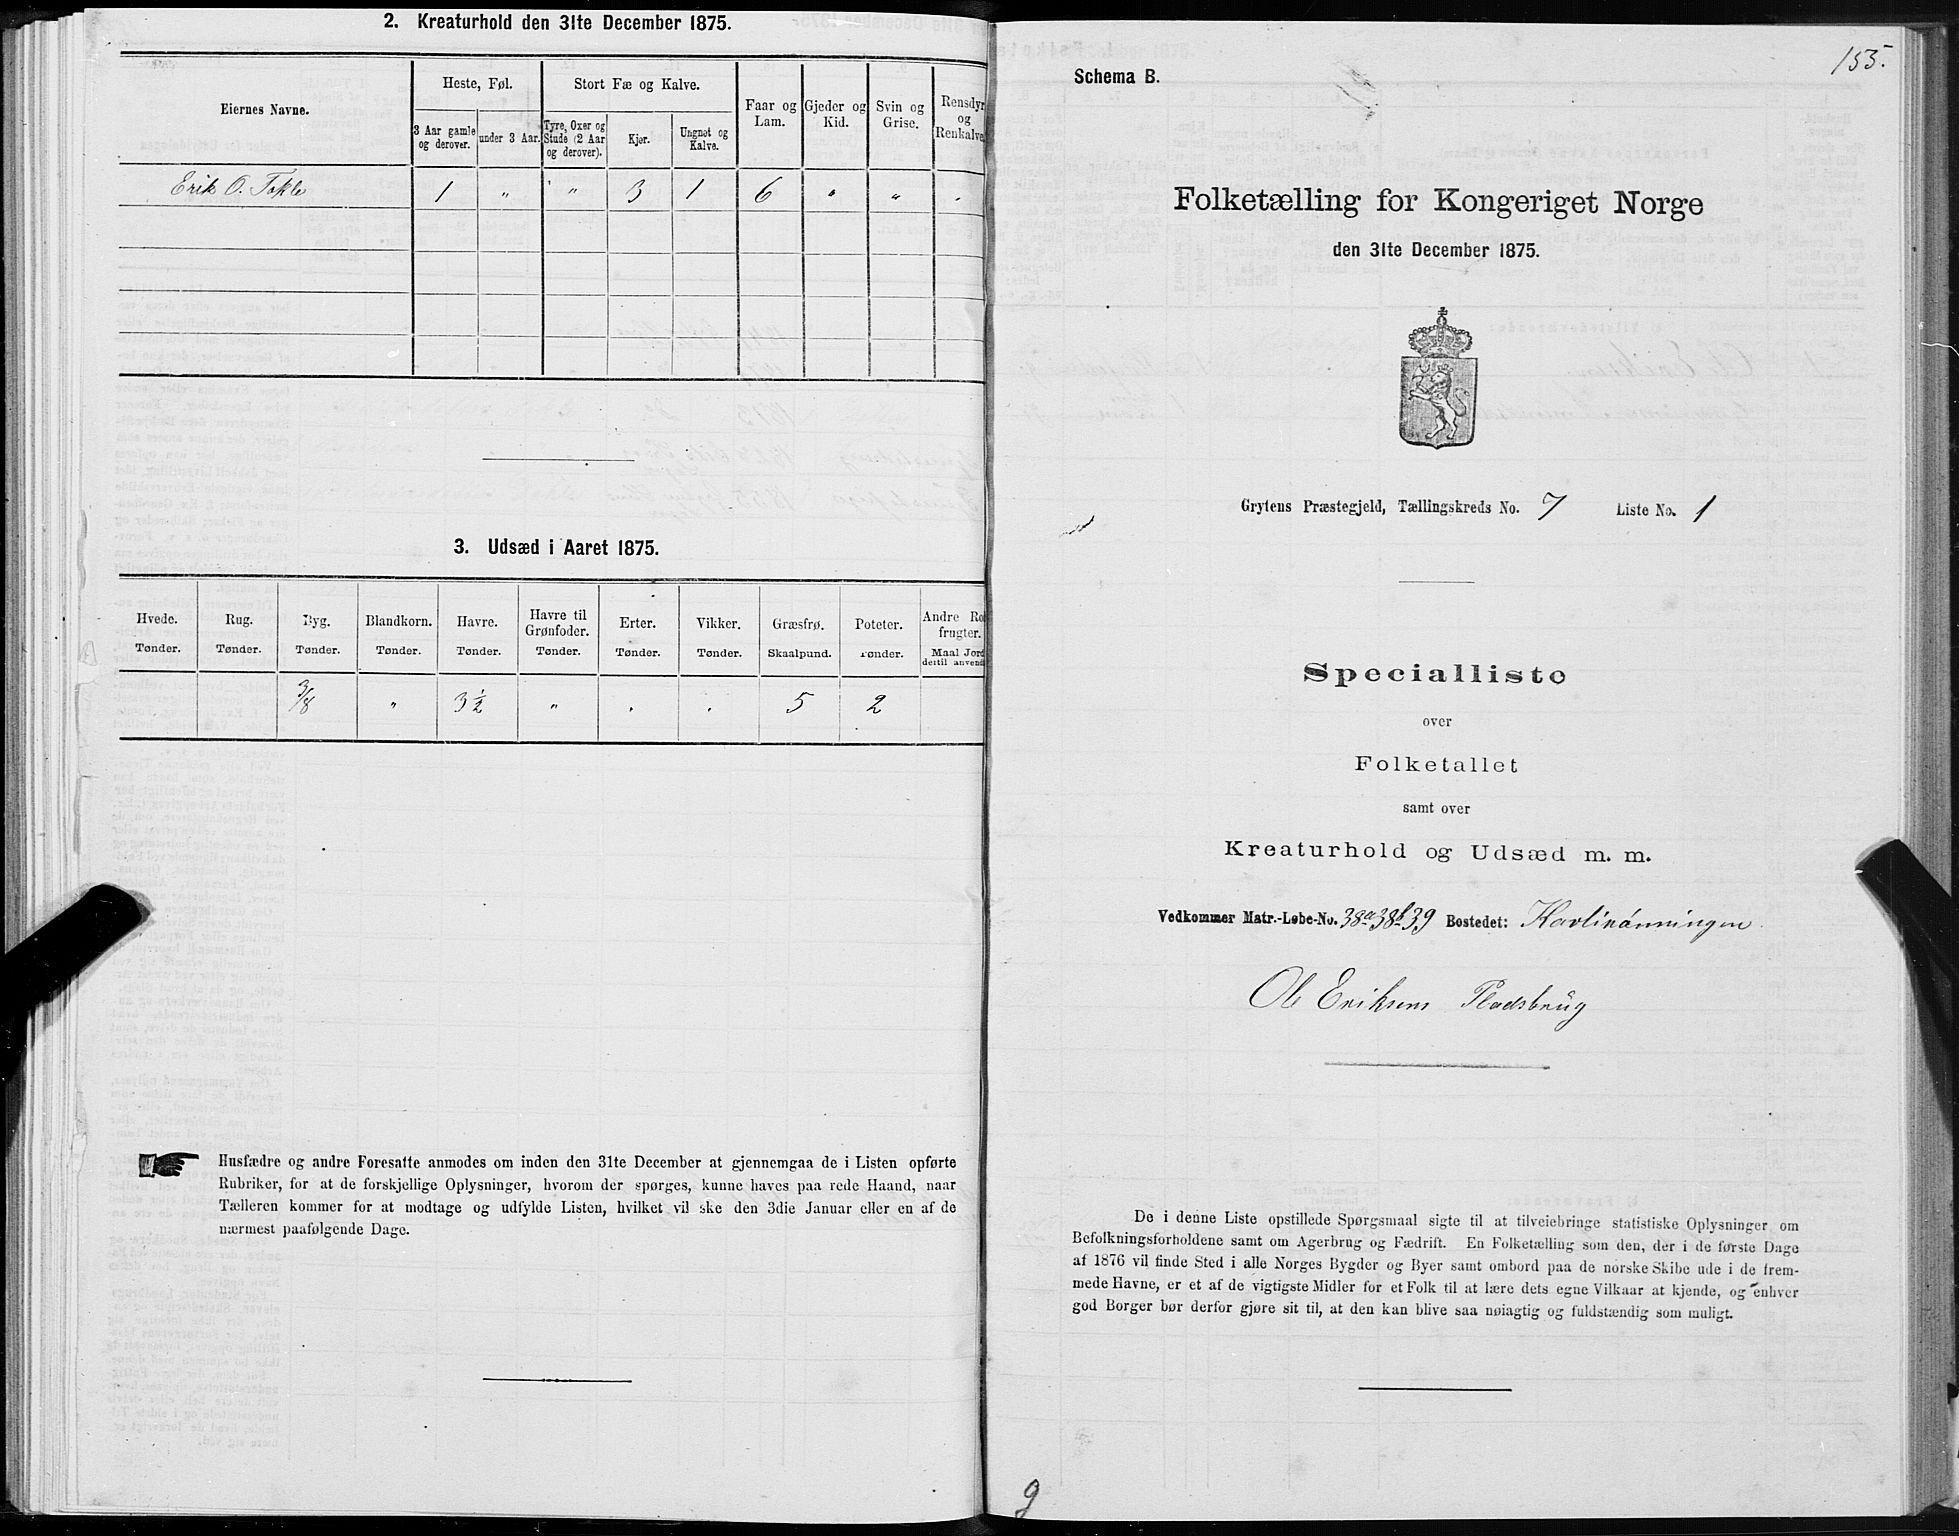 2. Kreaturhold den 31te December 1875.
Eiernes Navne.
Heste, Føl.
Stort Fæ og Kalve.
3 Aar gamle og derover.
under 3 Aar.
Tyre, Oxer og Stude (2 Aar og derover).
Kjør.
Ungnøt og Kalve.
Faar og Lam.
Gjeder og Kid.
Svin og Grise.
Rensdyr og Renkalve
Erik O. Tokle 1 " " 3 1 6 " " "
3. Udsæd i Aaret 1875.
Hvede. Rug. Byg. Blandkorn. Havre. Havre til Grønfoder. Erter. Vikker. Græsfrø. Poteter. Andre Ro frugter.
Tønder. Tønder. Tønder. Tønder. Tønder. Tønder. Tønder. Tønder. Skaalpund. Tønder. Maal Jord dertil anvend
3/8 " 3 1/2 " . . 5 2
Husfædre og andre Foresatte anmodes om inden den 31te December at gjennemgaa de i Listen opførte
Rubriker, for at de forskjellige Oplysninger, hvorom der spørges, kunne haves paa rede Haand, naar
Tælleren kommer for at modtage og udfylde Listen, hvilket vil ske den 3die Januar eller en af de
nærmest paafølgende Dage.
155.
Schema B.
Folketælling for Kongeriget Norge
den 31te December 1875.
Grytens Præstegjeld, Tællingskreds No. 7 Liste No. 1
Specialliste
over
Folketallet
samt over
Kreaturhold og Udsæd m. m.
Vedkommer Matr.-Løbe-No. 38a 38b 39 Bostedet: Havlirønningen.
Ole Eriksens Pladsbrug
De i denne Liste opstillede Spørgsmaal sigte til at tilveiebringe statistiske Oplysninger om
Befolkningsforholdene samt om Agerbrug og Fædrift. En Folketælling som den, der i de første Dage
af 1876 vil finde Sted i alle Norges Bygder og Byer samt ombord paa de norske Skibe ude i de frem-
mede Havne, er et af de vigtigste Midler for et Folk til at lære dets egne Vilkaar at kjende, og enhver
god Borger bør derfor gjøre sit til, at den kan blive saa nøiagtig og fuldstændig som muligt.
g